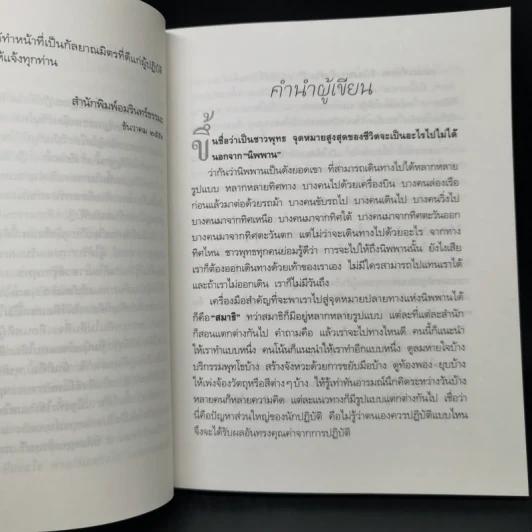 ทำหน้าที่เป็นกัลยาณมิตรที่ดีแก่ผู้ปฏิบัติ
แจ้งทุกท่าน
สำนักพิมพ์อมรินทร์ธรรมะ
ธันวาคม
คำนำผู้เขียน
ขึ้นชื่อว่าเป็นชาวพุทธ จุดหมายสูงสุดของชีวิตจะเป็นอะไรไปไม่ได้
นอกจาก “นิพพาน”
ว่ากันว่านิพพานเป็นดังยอดเขา ที่สามารถเดินทางไปได้หลากหลาย
รูปแบบ หลากหลายทิศทาง บางคนไปด้วยเครื่องบิน บางคนล่องเรือ
ก่อนแล้วมาต่อด้วยรถม้า บางคนขับรถไป บางคนเดินไป บางคนวิ่งไป
บางคนมาจากทิศเหนือ บางคนมาจากทิศใต้ บางคนมาจากทิศตะวันออก
บางคนมาจากทิศตะวันตก แต่ไม่ว่าจะเดินทางไปด้วยอะไร จากทาง
ทิศไหน ชาวพุทธทุกคนย่อมรู้ดีว่า การจะไปให้ถึงนิพพานนั้น ยังไงเสีย
เราก็ต้องออกเดินทางด้วยเท้าของเราเอง ไม่มีใครสามารถไปแทนเราได้
และถ้าเราไม่ออกเดิน เราก็ไม่มีวันถึง
เครื่องมือสำคัญที่จะพาเราไปสู่จุดหมายปลายทางแห่งนิพพานได้
ก็คือ “สมาธิ” ทว่าสมาธิก็มีอยู่หลากหลายรูปแบบ แต่ละที่แต่ละสำนัก
ก็สอนแตกต่างกันไป คำถามคือ แล้วเราจะไปทางไหนดี คนนี้ก็แนะนำ
ให้เราทำแบบหนึ่ง คนโน้นก็แนะนำให้เราทำอีกแบบหนึ่ง ดูลมหายใจบ้าง
บริกรรมพุทโธบ้าง สร้างจังหวะด้วยการขยับมือบ้าง ดูท้องพอง-ยุบบ้าง
ให้เพ่งจ้องวัตถุหรือสีต่างๆ บ้าง ให้รู้เท่าทันอารมณ์นึกคิดระหว่างวันบ้าง
หลายคนก็หลายความคิด แต่ละแนวทางก็มีรูปแบบแตกต่างกันไป เชื่อว่า
นี่คือปัญหาส่วนใหญ่ของนักปฏิบัติ คือไม่รู้ว่าตนเองควรปฏิบัติแบบไหน
จึงจะได้รับผลอันทรงคุณค่าจากการปฏิบัติ